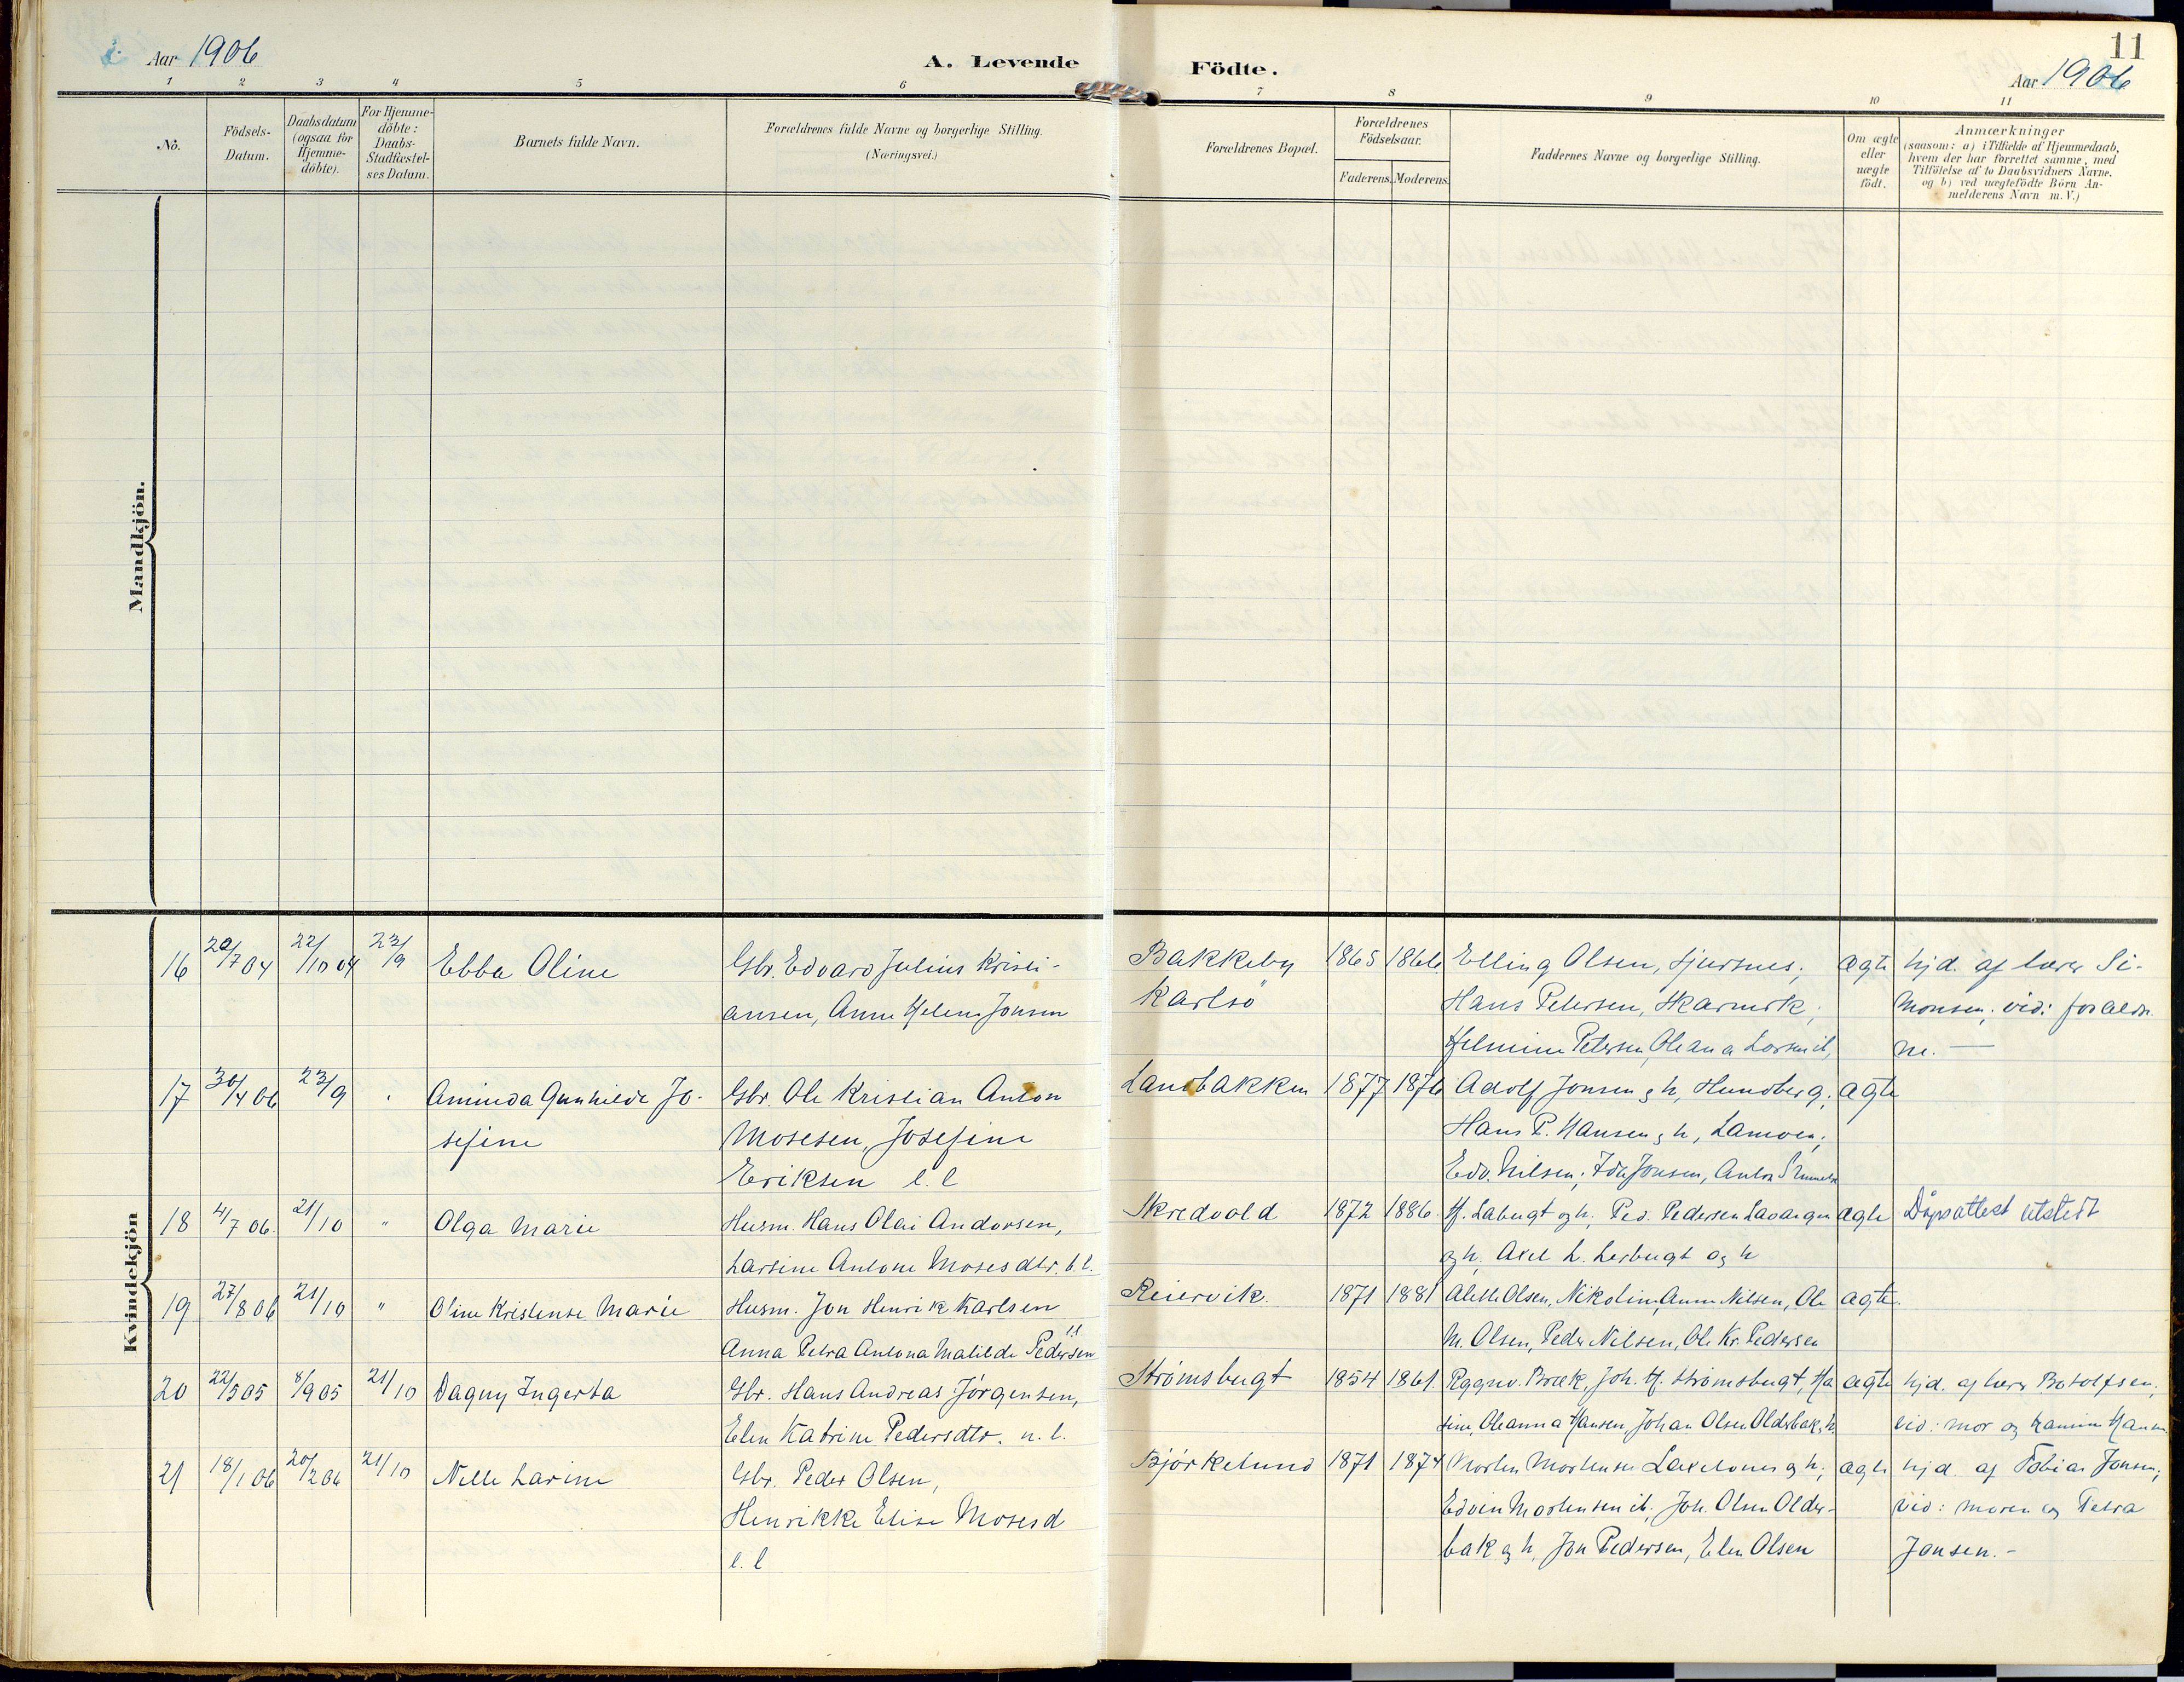 Aar 1906
A. Levende Födte.
11
Aar 1906
1 2 3 4 5 6 7 8 9 10 11
No.
Födsels-Datum.
Daabsdatum (ogsaa for Hjemme-döbte).
For Hjemme-döbte: Daabs-Stadfæstel-ses Datum.
Barnets fulde Navn.
Forældrenes fulde Navne og borgerlige Stilling. (Næringsvei.)
Forældrenes Bopæl.
Forældrenes Födselsaar.
Faderens. Moderens.
Faddernes Navne og borgerlige Stilling.
Om ægte eller uægte födt.
Anmærkninger
(saasom: a) i Tilfælde af Hjemmedaab,
hvem der har forrettet samme, med
Tilföielse af to Daabsvidners Navne.
og b) ved uægtefödte Börn An-
melderens Navn m. V.)
Mandkjön.
Kvindekjön
16 20/7 04 22/10 04 23/9 Ebba Oline Gbr. Edvard Julius Kristi- Bakkeby 1865 1866 Elling Olsen, Sjursnes; ægte hjd. af lærer Si-
ansen, Anne Helene Jonsen Karlsö Hans Petersen, Skarmrk; monsen; vid: foræld
Helmine Petersen, Oleana Larsen ib, ne. —
17 30/4 06 23/9 Aminda Gunhilde Jo- Gbr. Ole Kristian Anton Landbakken 1877 1876 Adolf Jonsen og h, Hundberg; ægte
sefine Mosesen, Josefine Hans P. Hansen og h, Lamoen;
Eriksen l.l Edv. Nilsen; Ida Jonsen, Anton
18 4/7 06. 21/10 " Olga Marie Husm. Hans Olai Andorsen, Skredvold 1872 1886. H. Labugt og h, Ped. Pedersen Lavangen ægte Dåpsattest utstedt
Larsine Antone Mosesdtr. l.l. og h, Axel L. Lerbugt og h
19 27/8 06 21/10 " Oline Kristense Marie Husm. Jon Henrik Karlsen Reiervik. 1871 1881 Alette Olsen, Nikoline, Anne Nilsen, Ole ægte.
l.l
Anna Petra Antona Matilde Pedersen M. Olsen, Peder Nilsen, Ol. Kr. Pedersen
20 22/5 05 8/9 05 21/10 Dagny Ingerta Gbr. Hans Andreas Jörgensen, Strømsbugt 1854 1861. Joh. H. Strømsbugt, Ha ægte hjd. af lærer Botolfsen;
Elen Katrine Pedersdtr. n.l. sine, Oleanna Hansen, Johan Olsen Olderbak, h. vid: mor og
21 18/1 06 20/2 06 21/10 Nelle Larine Gbr. Peder Olsen, Bjørkelund 1871 1874 Morten Mortensen og h; ægte hjd. af Tobias Jonsen;
Henrikke Elise Mosesd Edvin Mortensen ib, Joh. Olsen Older- vid: moren og Petra
l.l bak og h, Jon Pedersen, Elen Olsen Jansen. -